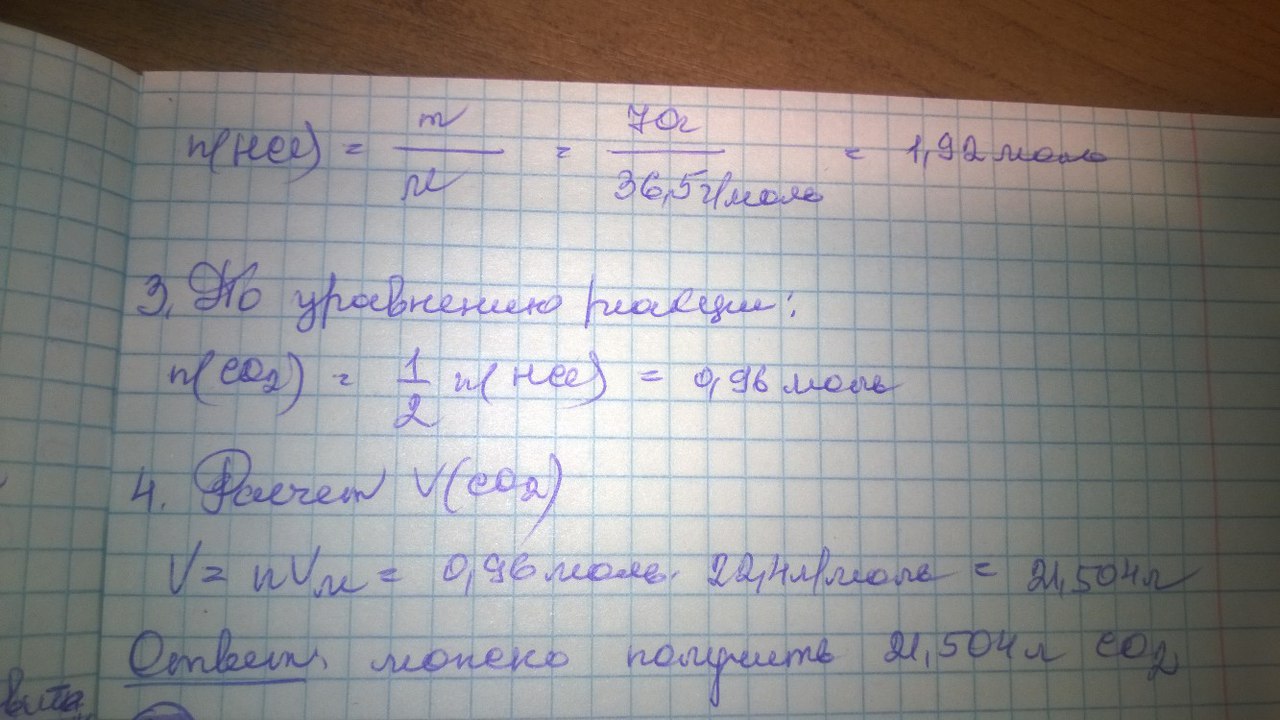 n(HCl) = m/M = 70г/36,5г/моль = 1,92 моль
3. По уравнению реакции:
n(CO₂) = 1/2 n(HCl) = 0,96 моль
4. Расчет V(CO₂)
V = nVм = 0,96 моль · 22,4л/моль = 21,504л
Ответ: можно получить 21,504л CO₂